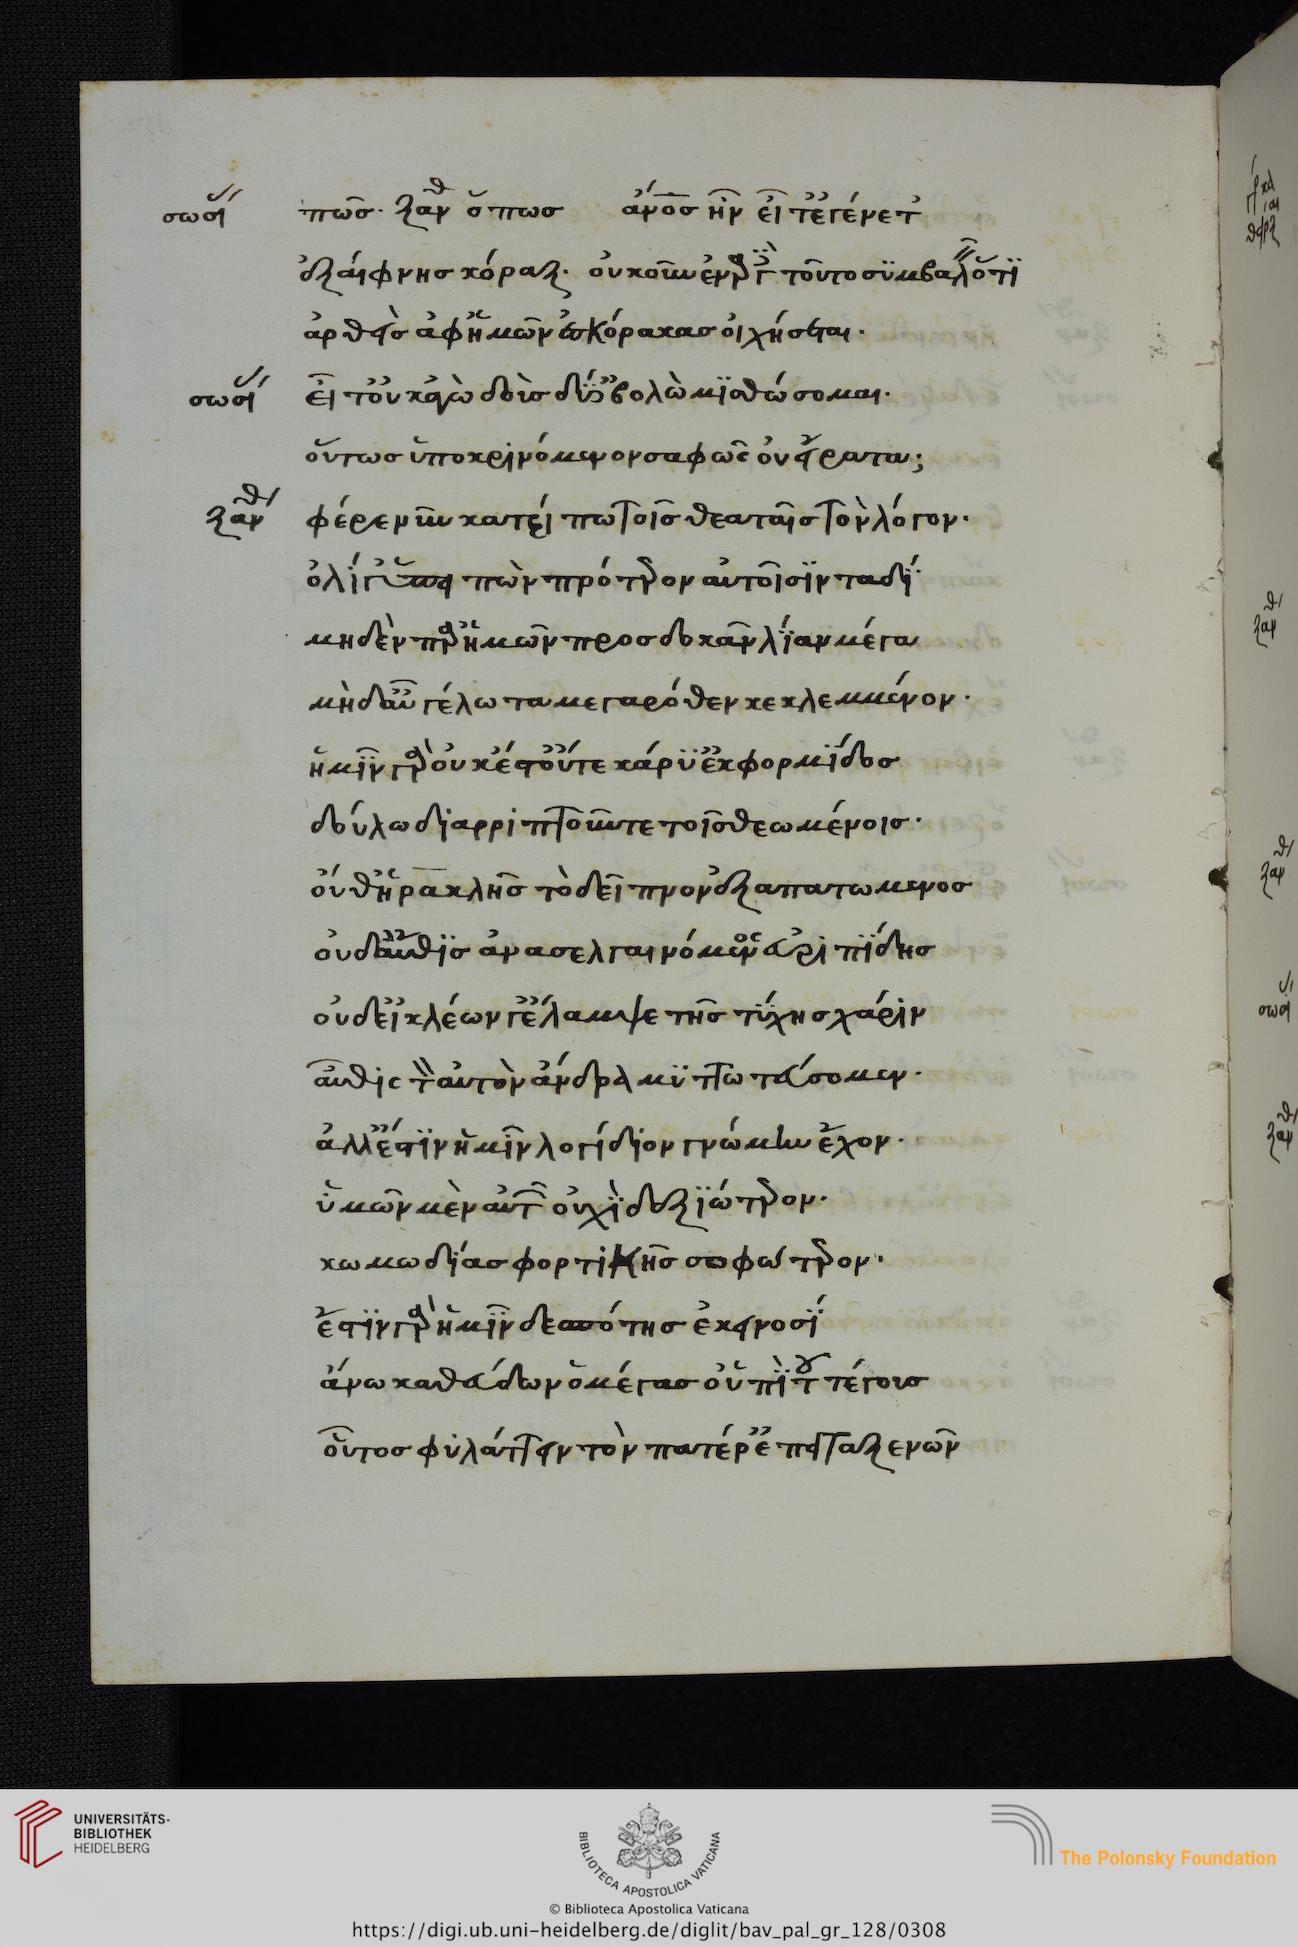 σωσί πῶς. ξανθ ὅπως ἄνος ἦν εἶτ' ἐγένετ'
ἐξαίφνης κόραξ. οὐκοῦν ἐναργὲς τοῦτο συμβαλεῖν ὅτι
ἀρθεὶς ἀφ' ἡμῶν ἐς κόρακας οἰχήσεται.
σωσί εἶτ' οὐκ ἐγὼ δοὺς δύ' ὀβολὼ μισθώσομαι.
οὕτως ὑποκρινόμενον σαφῶς ὀνείρατα;
ξανθ φέρε νῦν κατείπω τοῖς θεαταῖς τὸν λόγον.
ὀλίγ' ὑπειπὼν πρότερον αὐτοῖσιν ταδί
μηδὲν παρ' ἡμῶν προσδοκᾶν λίαν μέγα
μὴδ' αὖ γέλωτα μεγαρόθεν κεκλεμμένον.
ἡμῖν γὰρ οὐκ ἔστ' οὔτε κάρυ' ἐκ φορμίδος
δούλω διαρριπτοῦντε τοῖς θεωμένοις.
οὔθ' ἡρακλῆς τὸ δεῖπνον ἐξαπατώμενος
οὐδ' αὖθις ἀνασελγαινόμενος εὐριπίδης
οὐδ' εἰ κλέων γ' ἔλαμψε τῆς τύχης χάριν
αὖθις τὸν αὐτὸν ἄνδρα μυττωτεύσομεν.
ἀλλ' ἔστιν ἡμῖν λογίδιον γνώμην ἔχον.
ὑμῶν μὲν αὐτῶν οὐχὶ δεξιώτερον.
κωμωδίας φορτικῆς σοφώτερον.
ἔστιν γὰρ ἡμῖν δεσπότης ἐκεινοσί
ἄνω καθεύδων ὁ μέγας οὑπὶ τοῦ τέγους
οὗτος φυλάττειν τὸν πατέρ' ἐπέταξε νῶν
UNIVERSITÄTS-
BIBLIOTHEK
HEIDELBERG
BIBLIOTECA APOSTOLICA VATICANA
The Polonsky Foundation
© Biblioteca Apostolica Vaticana
https://digi.ub.uni-heidelberg.de/diglit/bav_pal_gr_128/0308